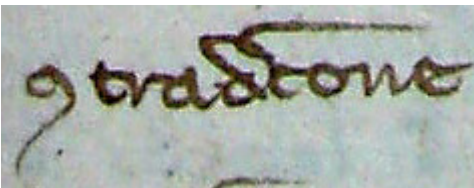 ꝯtradc̄one